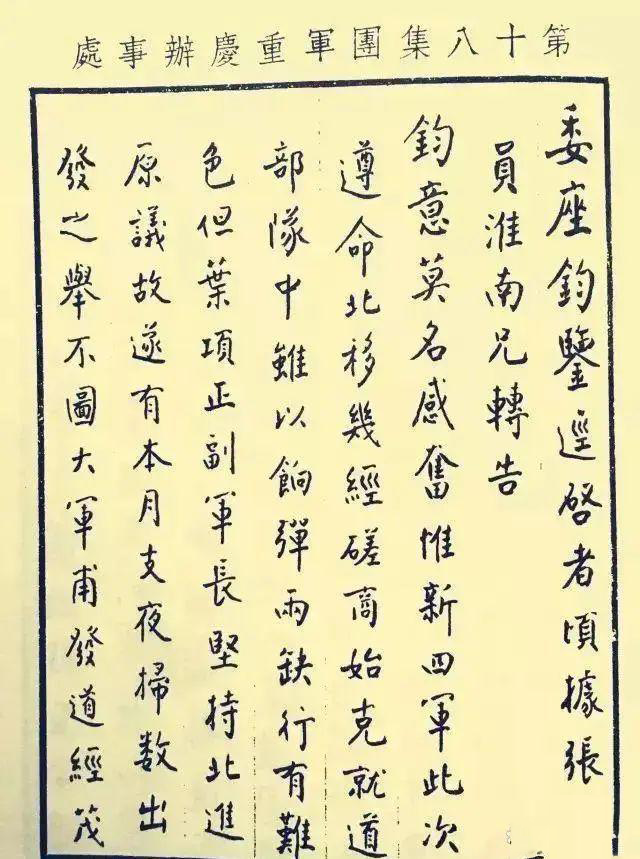 第十八集團軍重慶辦事處
委座鈞鑒逕啓者頃據張
員淮南兄轉告
鈞意莫名感奮惟新四軍此次
遵命北移幾經磋商始克就道
部隊中雖以餉彈兩缺行有難
色但葉項正副軍長堅持北進
原議故遂有本月支夜掃数出
發之舉不圖大軍甫發道經茂